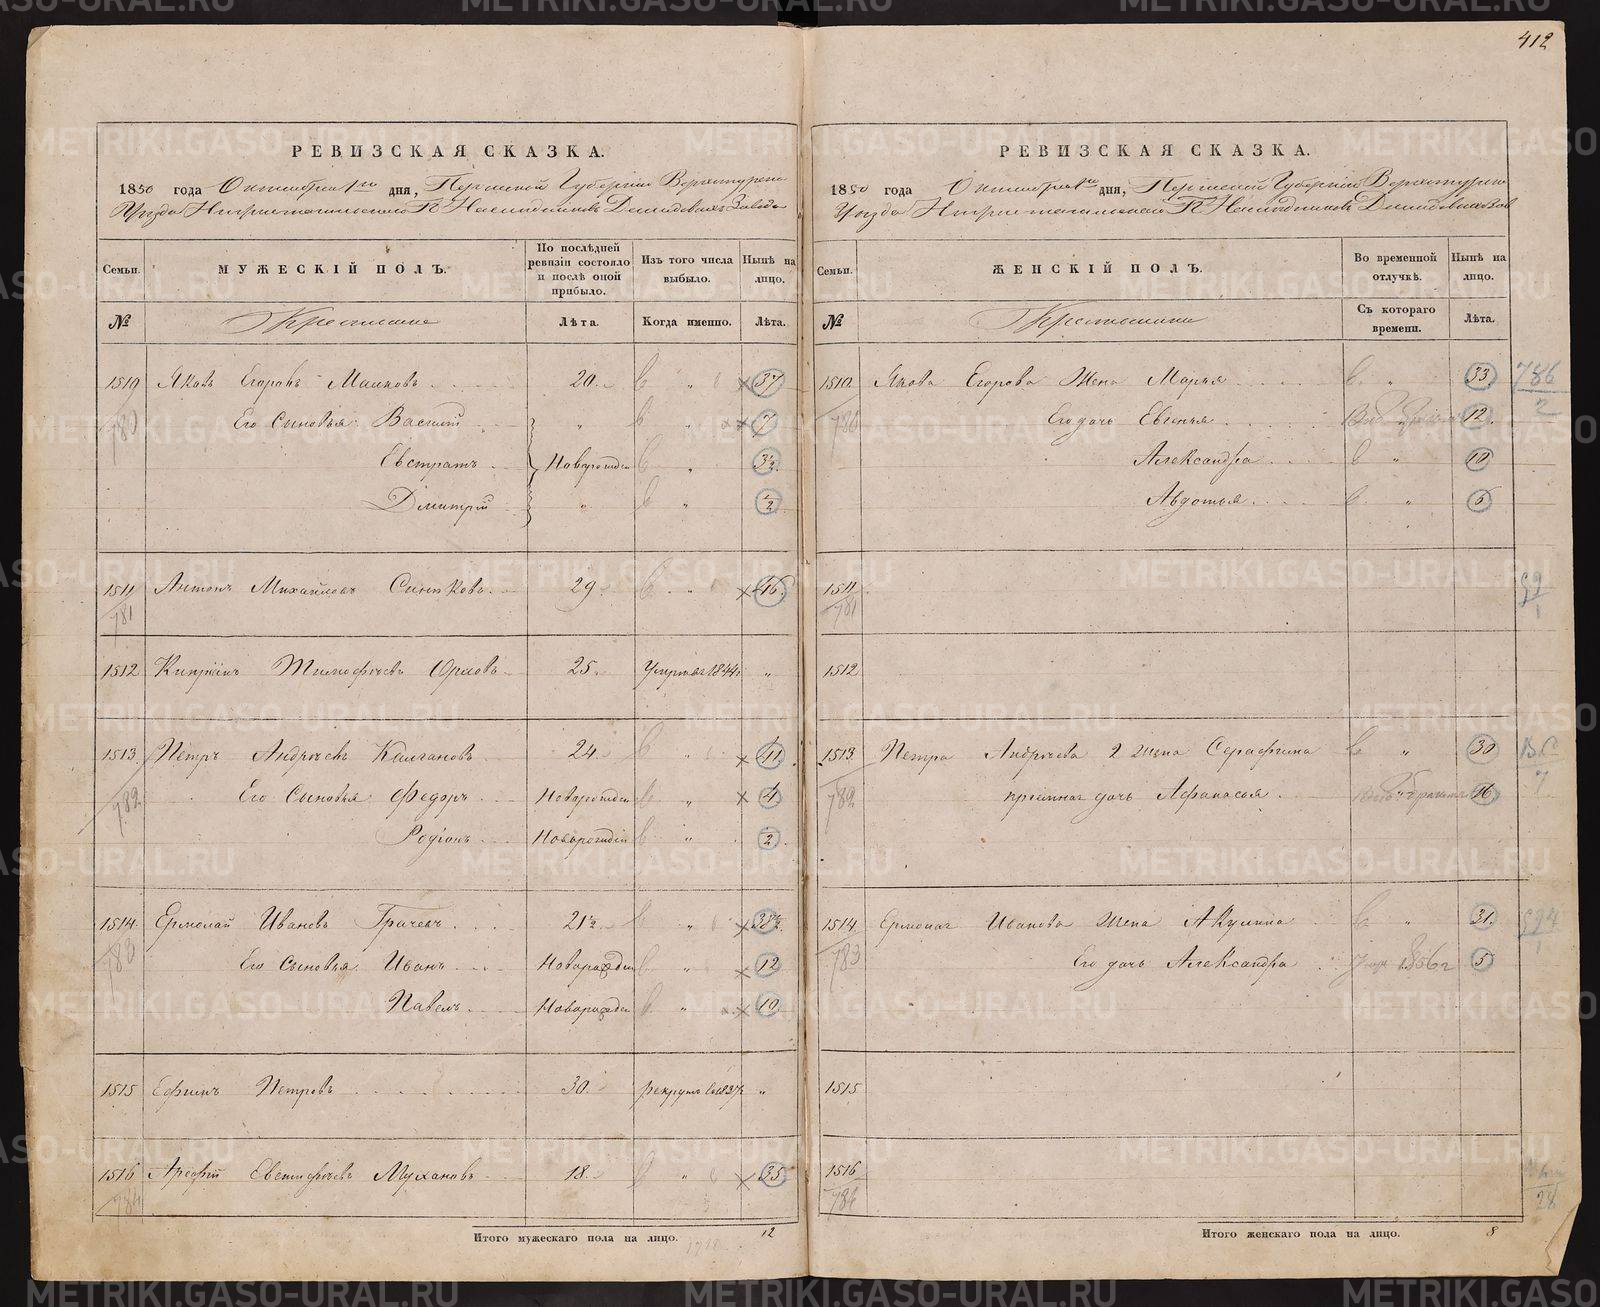 412
РЕВИЗСКАЯ СКАЗКА.
1850 года Октября 1го дня, Пермской Губернии Верхотурскаго
Уѣзда Нижнетагильскаго Гг Наслѣдниковъ Демидовыхъ Завода
Семьи.
МУЖЕСКІЙ ПОЛЪ.
По послѣдней ревизіи состояло и послѣ оной прибыло.
Изъ того числа выбыло.
Нынѣ на лицо.
№
Крестьяне
Лѣта.
Когда именно.
Лѣта.
1510 Яковъ Егоровъ 20 " 37
780 Его Сыновья Василій " " 7
Евстратъ Новорожден " 3½
Дмитрій " " ½
1511 Антонъ Михайловъ 29 " 46
781
1512 Тимофѣевъ Орловъ 25 умръ 1844 "
1513 Петръ Андрѣевъ Калгановъ 24 " 41
782 Его Сыновья Федоръ Новорожден " 4
Родіонъ Новорожден " 2
1514 Ермолай Ивановъ Грачевъ 21½ " 38½
783 Его Сыновья Иванъ Новорожден " 12
Павелъ Новорожден " 10
1515 Ефимъ Петровъ 30 рекрутъ "
1516 Арефій Мухановъ 18 " 35
784
Итого мужескаго пола на лицо. 12
РЕВИЗСКАЯ СКАЗКА.
1850 года Октября 1го дня, Пермской Губерніи Верхотурскаго
Уѣзда Нижнетагильскаго Гг Наслѣдниковъ Демидовыхъ Зав
Семьи.
ЖЕНСКІЙ ПОЛЪ.
Во временной отлучкѣ.
Нынѣ на лицо.
№
Крестьянки
Съ котораго времени.
Лѣта.
1510 Якова Егорова Жена Марья " 33 786
780 Его дочь Евгенья 12 2
Александра " 10
Авдотья " 6
1511
781 1
1512
1513 Петра Андрѣева 2 жена Серафима " 30
782 приемная дочь Афанасья 16 7
1514 Ермолая Иванова жена Акулина " 31
783 Его дочь Александра 1856 г 5 1
1515
1516
784 28
Итого женскаго пола на лицо. 8
METRIKI.GASO-URAL.RU